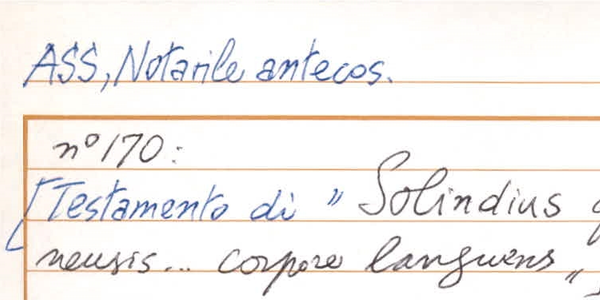 ASS, Notarile antecos.
n° 170:
[Testamento di " Solindius
nensis... corpore languens "